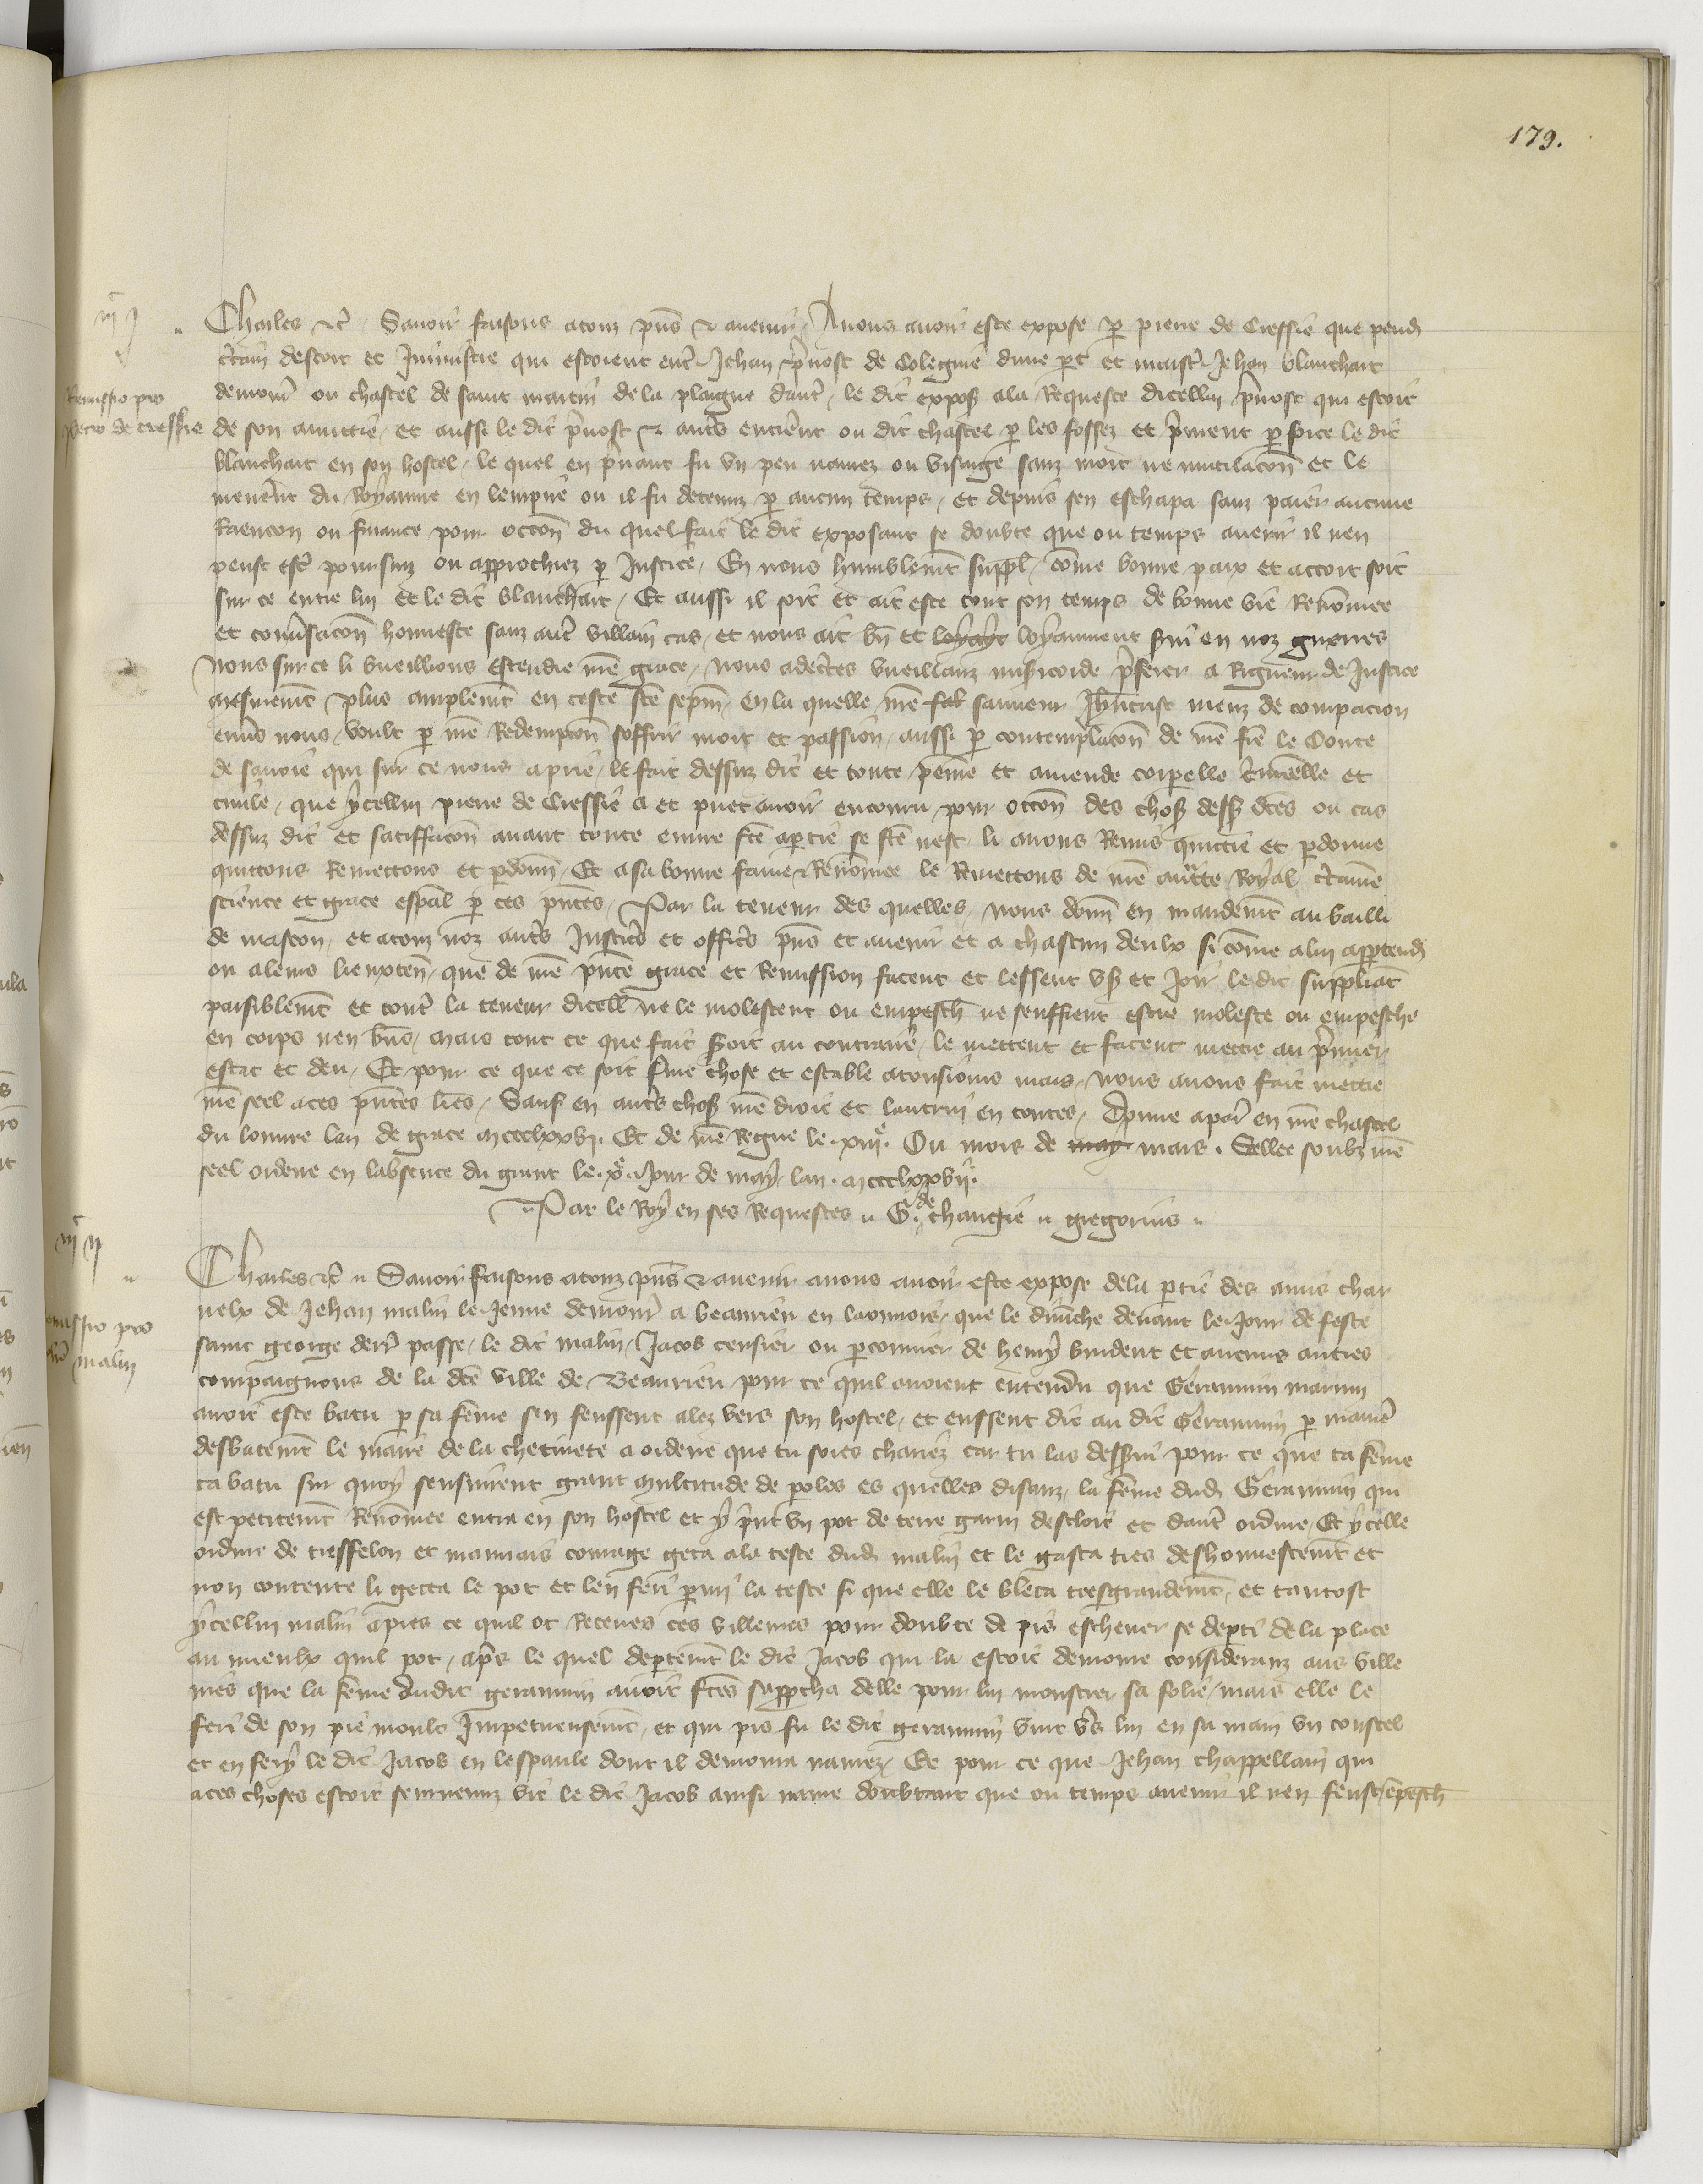 179.
iijc j
Charles etc. Savoir faisons a touz pns et avenir A nous avoir este expose p pierre de Cressie que pend
ctain descort et Inimistie qui estoient entr Jehan pvost de Colegnie dune pt et maistr Jehan blanchart
Remissio pro
demour ou chastel de saint martin de la plaigne dautr le dit expos a la Requeste dicellui pvost qui estoit
petro de cressie
de son amittie et aussi le dit pvost et autrs entrent ou dit chastel p les fossez et prirent p force le dit
blanchart en son hostel le quel en pnant fu un peu navrez ou visaige sanz mort ne mutilacon et le
menerent du Royaume en lempire ou il fu detenuz p aucun temps et depuis sen eschapa sanz paier aucune
Raencon ou finance pour occon du quel fait le dit exposant se doubte que ou temps avenir il nen
peust estr poursuiz ou approchiez p Justice En nous humblemt suppl comme bonne paix et accort soit
sur ce entre lui et le dit blanchart Et aussi il soit et ait este tout son temps de bonne vie Renommee
et conversacon honneste sanz autr villain cas et nous ait bn et loyaument svi en noz guerres
Nous sur ce li vueillions estendre nre grace Nous adecertes vueillanz misericorde pferer a Rigueur de Justice
mesmement plus amplemt en ceste ste sepm en la quelle nre sauveur Jhucrist meuz de compacion
envs nous voult p nre Redempcon soffrir mort et passion aussi p contemplacon de nre fre le Conte
de savoie qui sur ce nous a prie le fait dessuz dit et toute peinne et amende corporelle criminelle et
civile que ycellui pierre de Cressie a et puet avoir encouru pour occon des chos dess dtes ou cas
dessuz dit et satiffacon avant toute euvre fte a ptie se fte nest li avons Remis quictie et pdonne
quictons Remettons et pdonn Et a sa bonne fame et Renommee le Remettons de nre auctte Royal ctainne
science et grace espal p ces pntes Par la teneur des quelles nous donn en mandemt au bailli
de mascon et a touz noz autrs Justiciers et officrs pns et avenir et a chascun deulx si comme a lui apptend
ou a leurs lieuxten que de nre pnte grace et Remission facent et lessent us et Joir le dit suppliant
paisiblemt et contr la teneur dicell ne le molestent ou empesch ne seuffrent estre moleste ou empesche
en corps nen bns mais tout ce que fait seroit au contraire le mettent et facent mettre au pmier
estat et deu Et pour ce que ce soit ferme chose et estable a tousiours mais Nous avons fait mettre
nre seel a ces pntes lres Sauf en autrs chos nre droit et lautrui en toutes Donne a par en nre chastel
du louvre lan de grace mccclxxvj. Et de nre Regne le xiije Ou mois de mars. Sellee soubz nre
seel ordene en labsence du grant le xe Jour de may lan mccclxxvij.
Par le Roy en ses Requestes G. de changie gregorius
iijc ij
Charles etc. Savoir faisons a touz pns et avenir a nous avoir este expose de la ptie des amis char
nelx de Jehan malin le Jeune demour a beaurieu en laonnois que le dimenche devant le Jour de feste
Remissio pro
saint george derr passe le dit malin Jacob censier ou pconnier de henry et aucuns autres
malin
compaignons de la dte ville de Beaurieu pour ce quil avoient entendu que Geraunin
avoit este batu p sa femme sen feussent alez vers son hostel et eussent dit au dit Geraunin p manier
desbatemt le maire de la a ordene que tu soies car tu las desservi pour ce que ta femme
ta batu sur quoy sensuirent grant multitude de poles es quelles disanz la femme dud Geraunin qui
est petitemt Renommee entra en son hostel et y print un pot de terre garni descloit et dautr ordure Et ycelle
ordure de tresfelon et mauvais courage geta a la teste dud malin et le gasta tres deshonnestemt et
non contente li getta le pot et len feri pmi la teste si que elle le bleca tresgrandemt et tantost
ycellui malin apres ce quil ot Receues ces villenies pour doubte de pis eschever se depti de la place
au mieulx quil pot aps le quel deptemt le dit Jacob qui la estoit demoure consideranz aus ville
nies que la femme dudit geraunin avoit ftes sapprcha delle pour lui monstrer sa folie mais elle le
feri de son pie moult Impetueusemt et qui pis fu le dit geraunin vint vs lui en sa main un coustel
et en fery le dit Jacob en lespaule dont il demoura navrez Et pour ce que Jehan chappellain qui
a ces choses estoit seurvenuz vit le dit Jacob ainsi navre doubtant que ou temps avenir il nen feust empesch